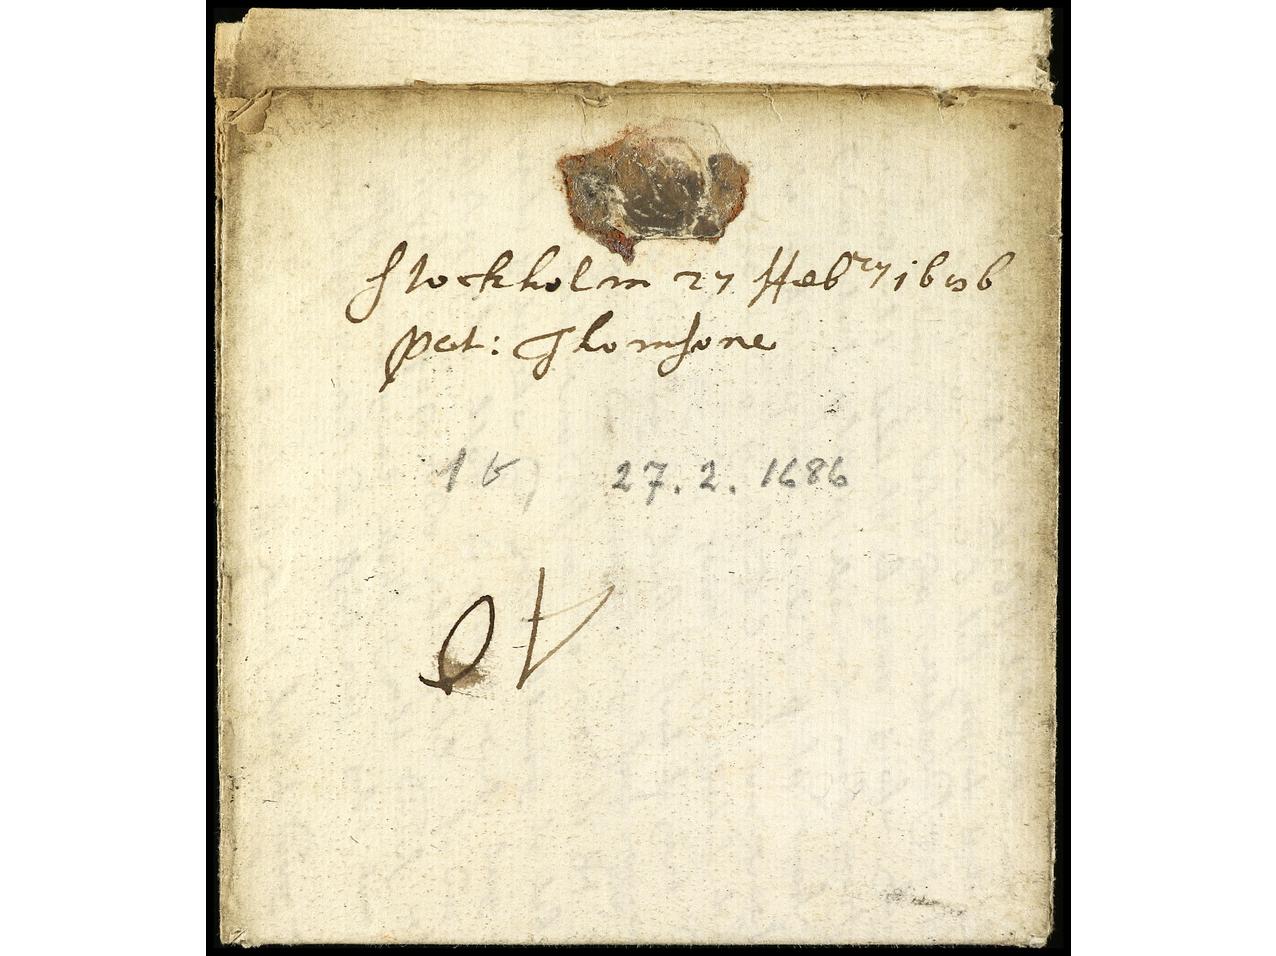 Stockholm 27 ffebry 1686
pet: Thomsone
27. 2. 1686